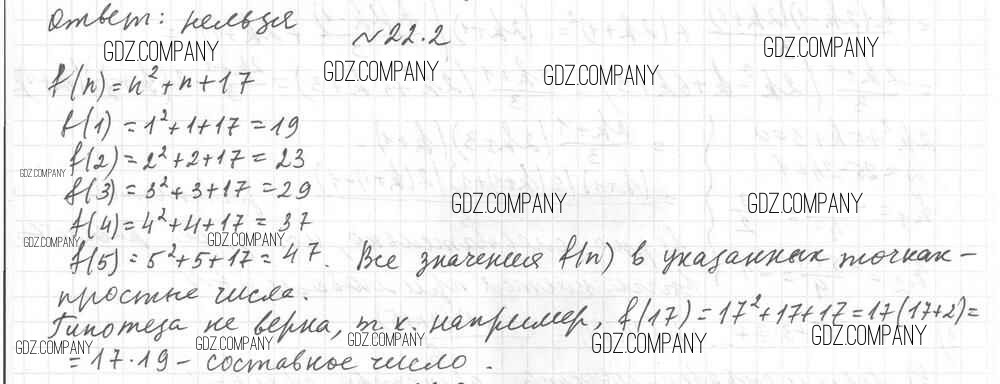 ответ: нельзя
№22.2
GDZ.COMPANY GDZ.COMPANY
GDZ.COMPANY GDZ.COMPANY
f(n)=n²+n+17
f(1)=1²+1+17=19
f(2)=2²+2+17=23
GDZ.COMPANY
f(3)=3²+3+17=29
GDZ.COMPANY GDZ.COMPANY
f(4)=4²+4+17=37
GDZ.COMPANY GDZ.COMPANY
f(5)=5²+5+17=47. Все значения f(n) в указанных точках –
простые числа.
Гипотеза не верна, т.к. например, f(17)=17²+17+17=17(17+2)=
GDZ.COMPANY GDZ.COMPANY GDZ.COMPANY GDZ.COMPANY GDZ.COMPANY
=17·19 – составное число.